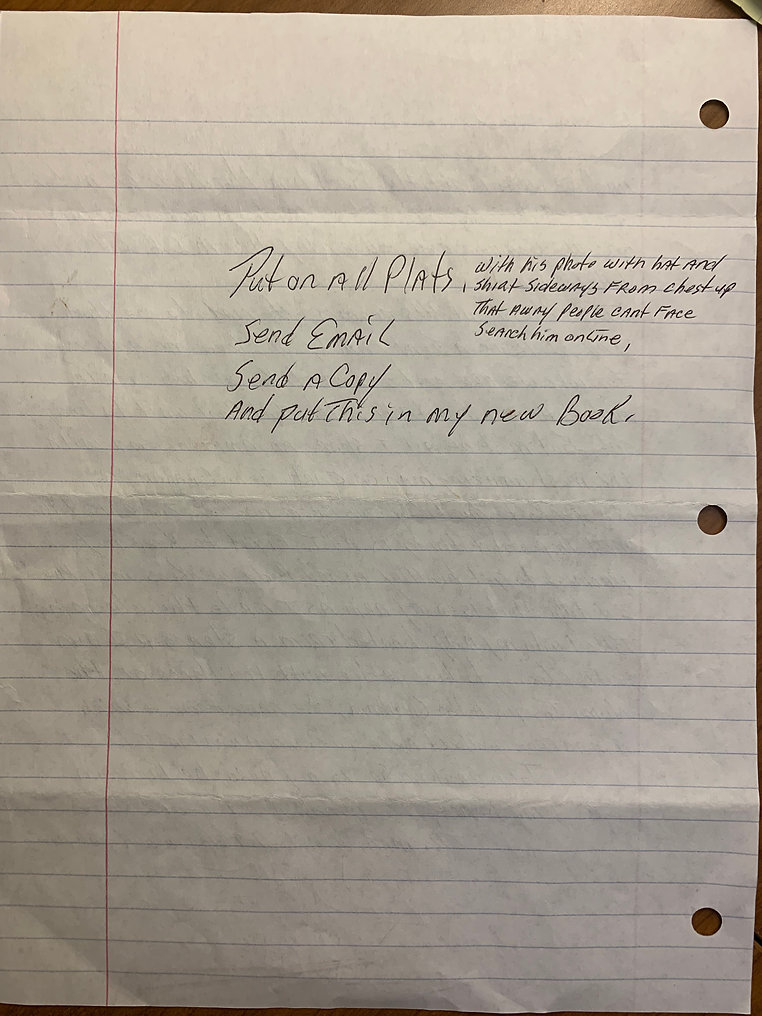 Put on All Plats,
with his photo with hat and
shirt sideways From chest up
That away people cant Face
Search him online,
Send Email
Send A Copy
And put This in my new Book.